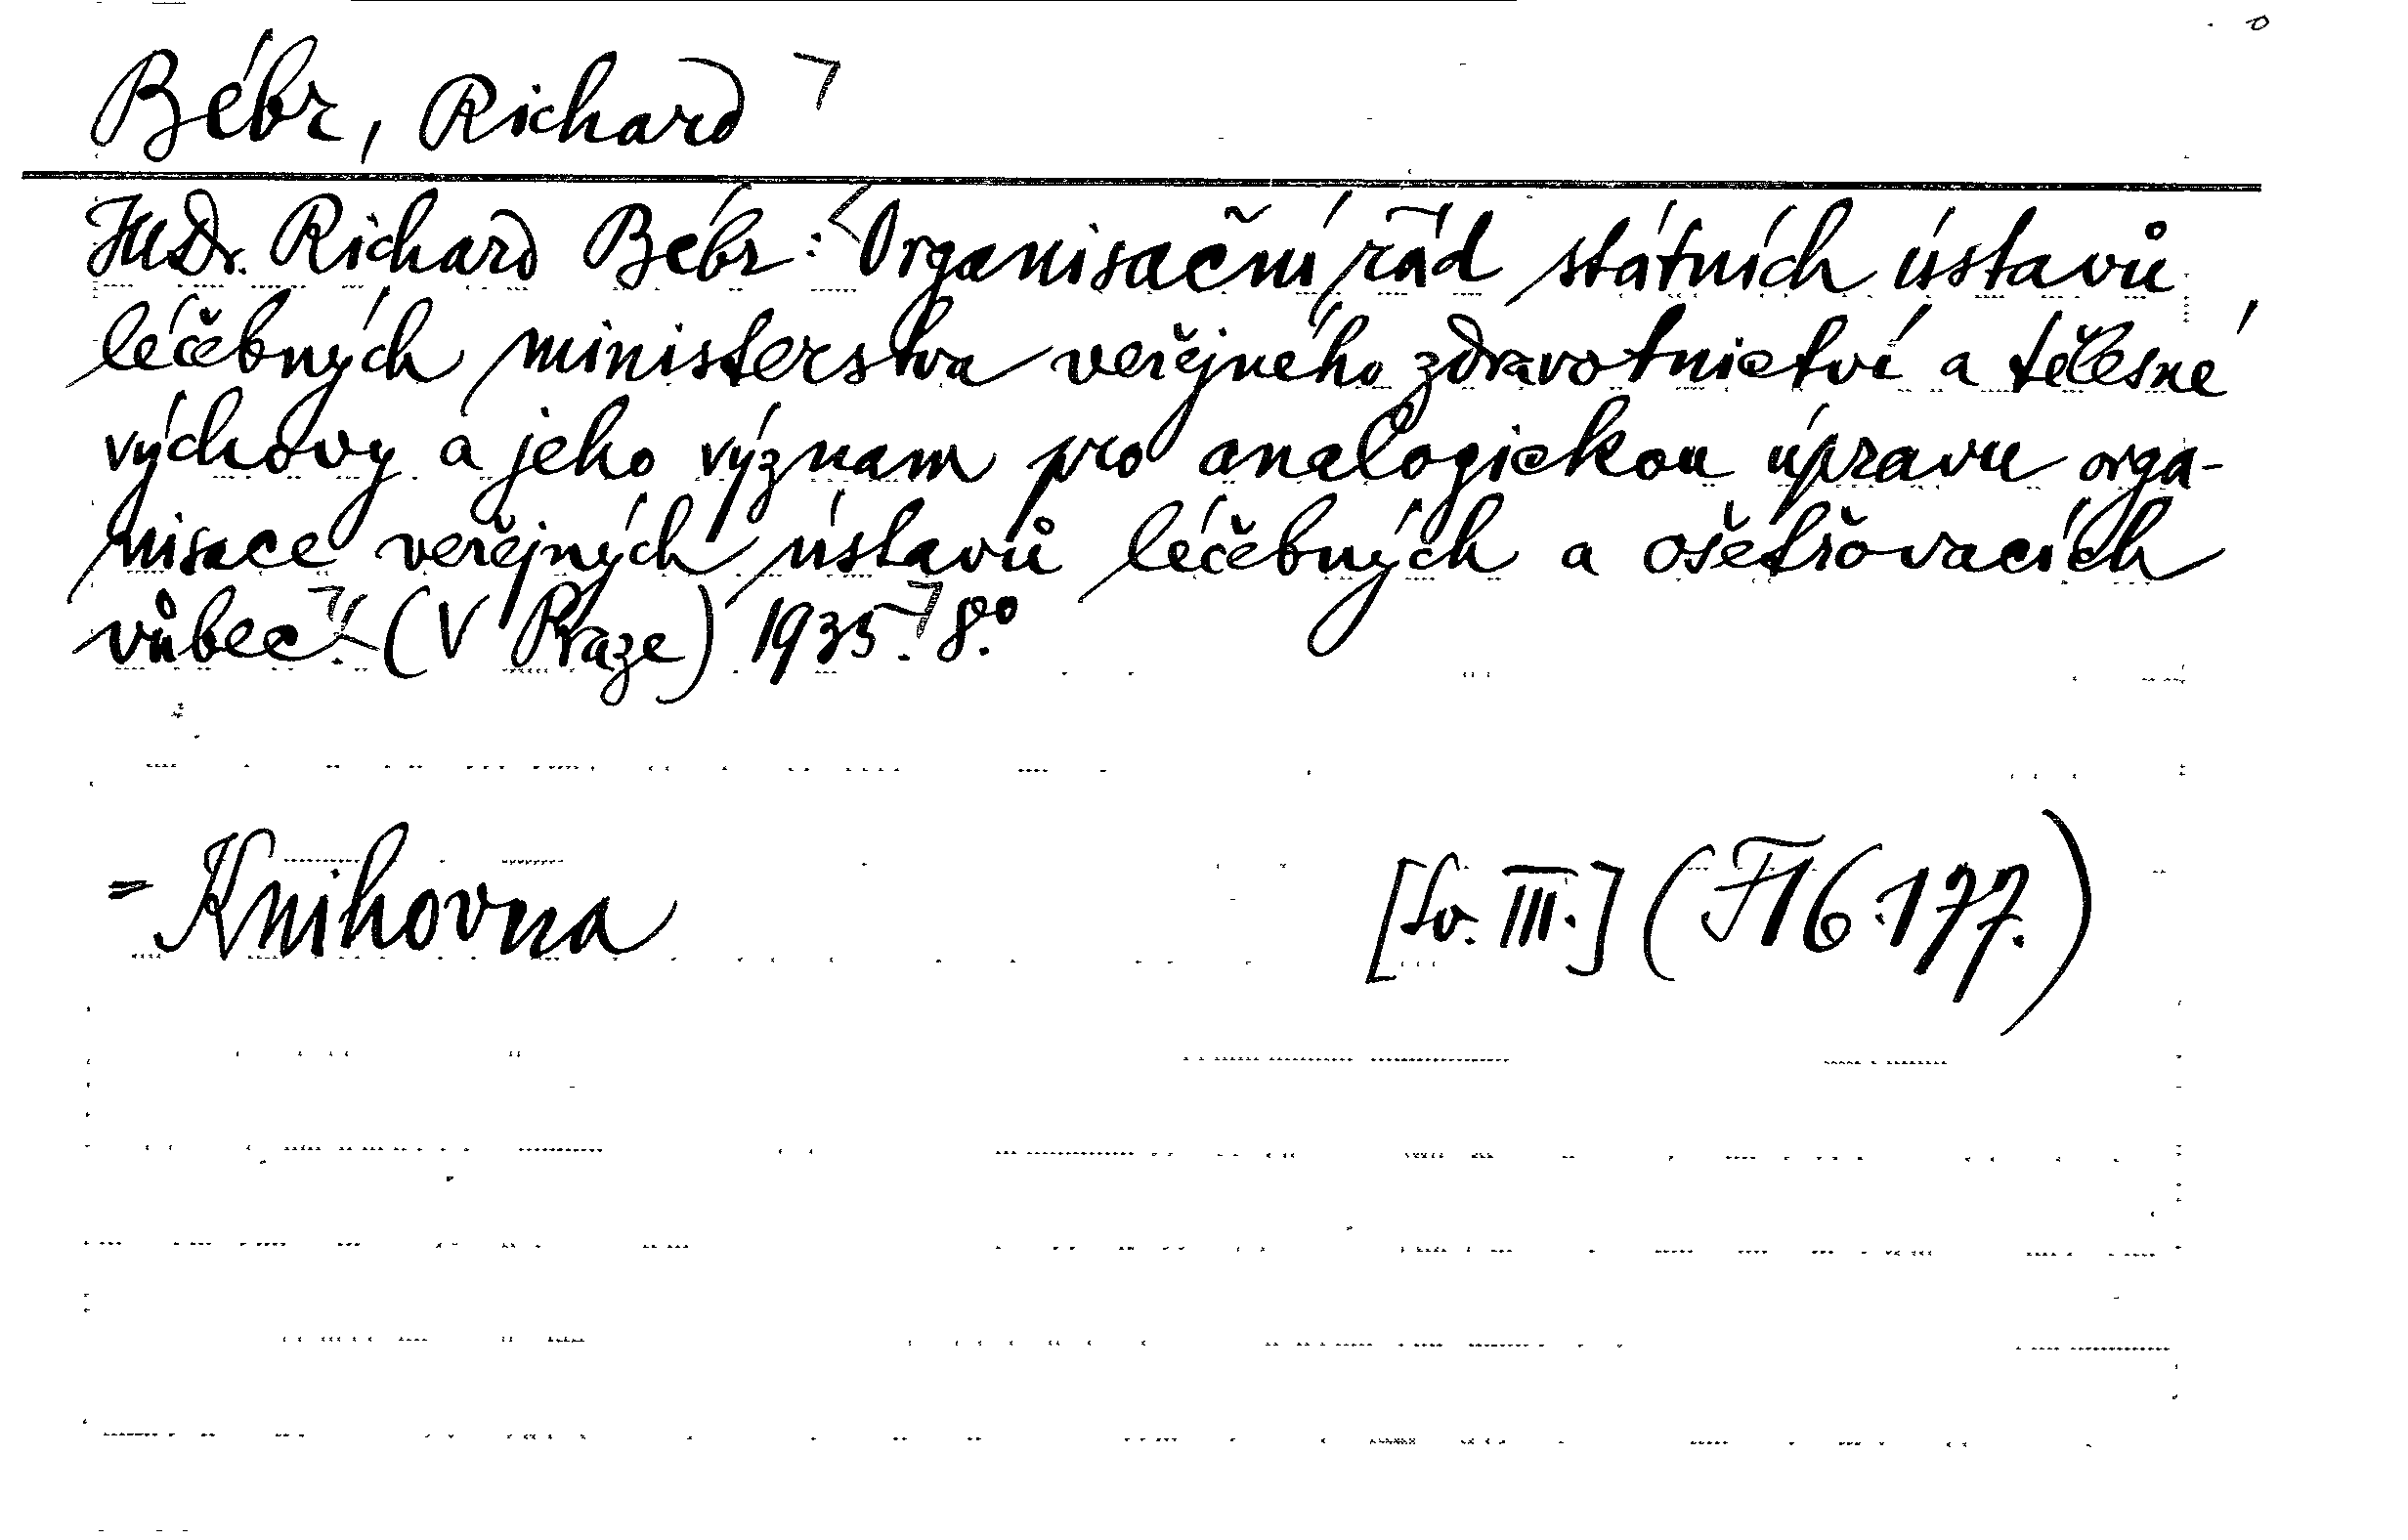 Bébr, Richard
JUDr. Richard Bébr: Organisační řád státních ústavů
léčebných ministerstva veřejného zdravotnictví a tělesné
výchovy a jeho význam pro analogickou úpravu orga-
nisace veřejných ústavů léčebných a ošetřovacích
vůbec. (V Praze) 1935. 8°.
= Knihovna [Sv. III.] (F 16.177.)